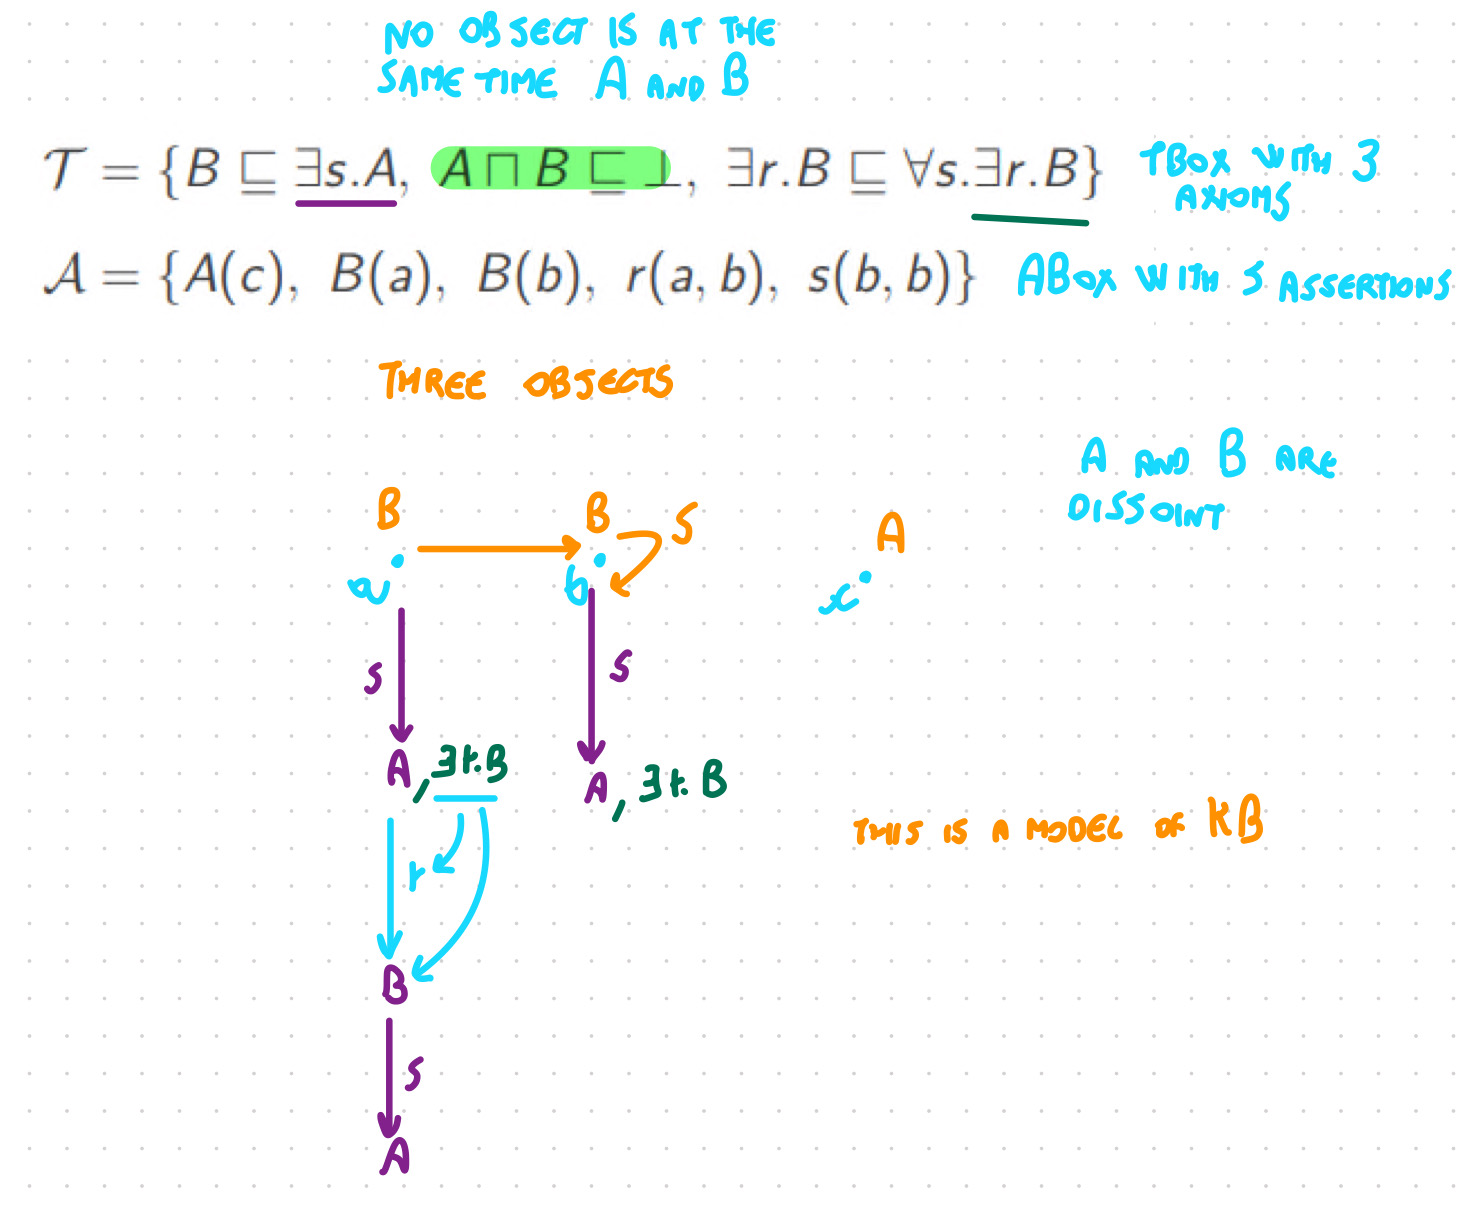 NO OBJECT IS AT THE
SAME TIME A AND B
𝒯 = {B ⊑ ∃s.A, A ⊓ B ⊑ ⊥, ∃r.B ⊑ ∀s.∃r.B} TBOX WITH 3
AXIOMS
𝒜 = {A(c), B(a), B(b), r(a, b), s(b, b)} ABOX WITH 5 ASSERTIONS
THREE OBJECTS
A AND B ARE
DISJOINT
B B S A
a b c
S S
A, ∃r.B A, ∃r.B
THIS IS A MODEL OF KB
r
B
S
A